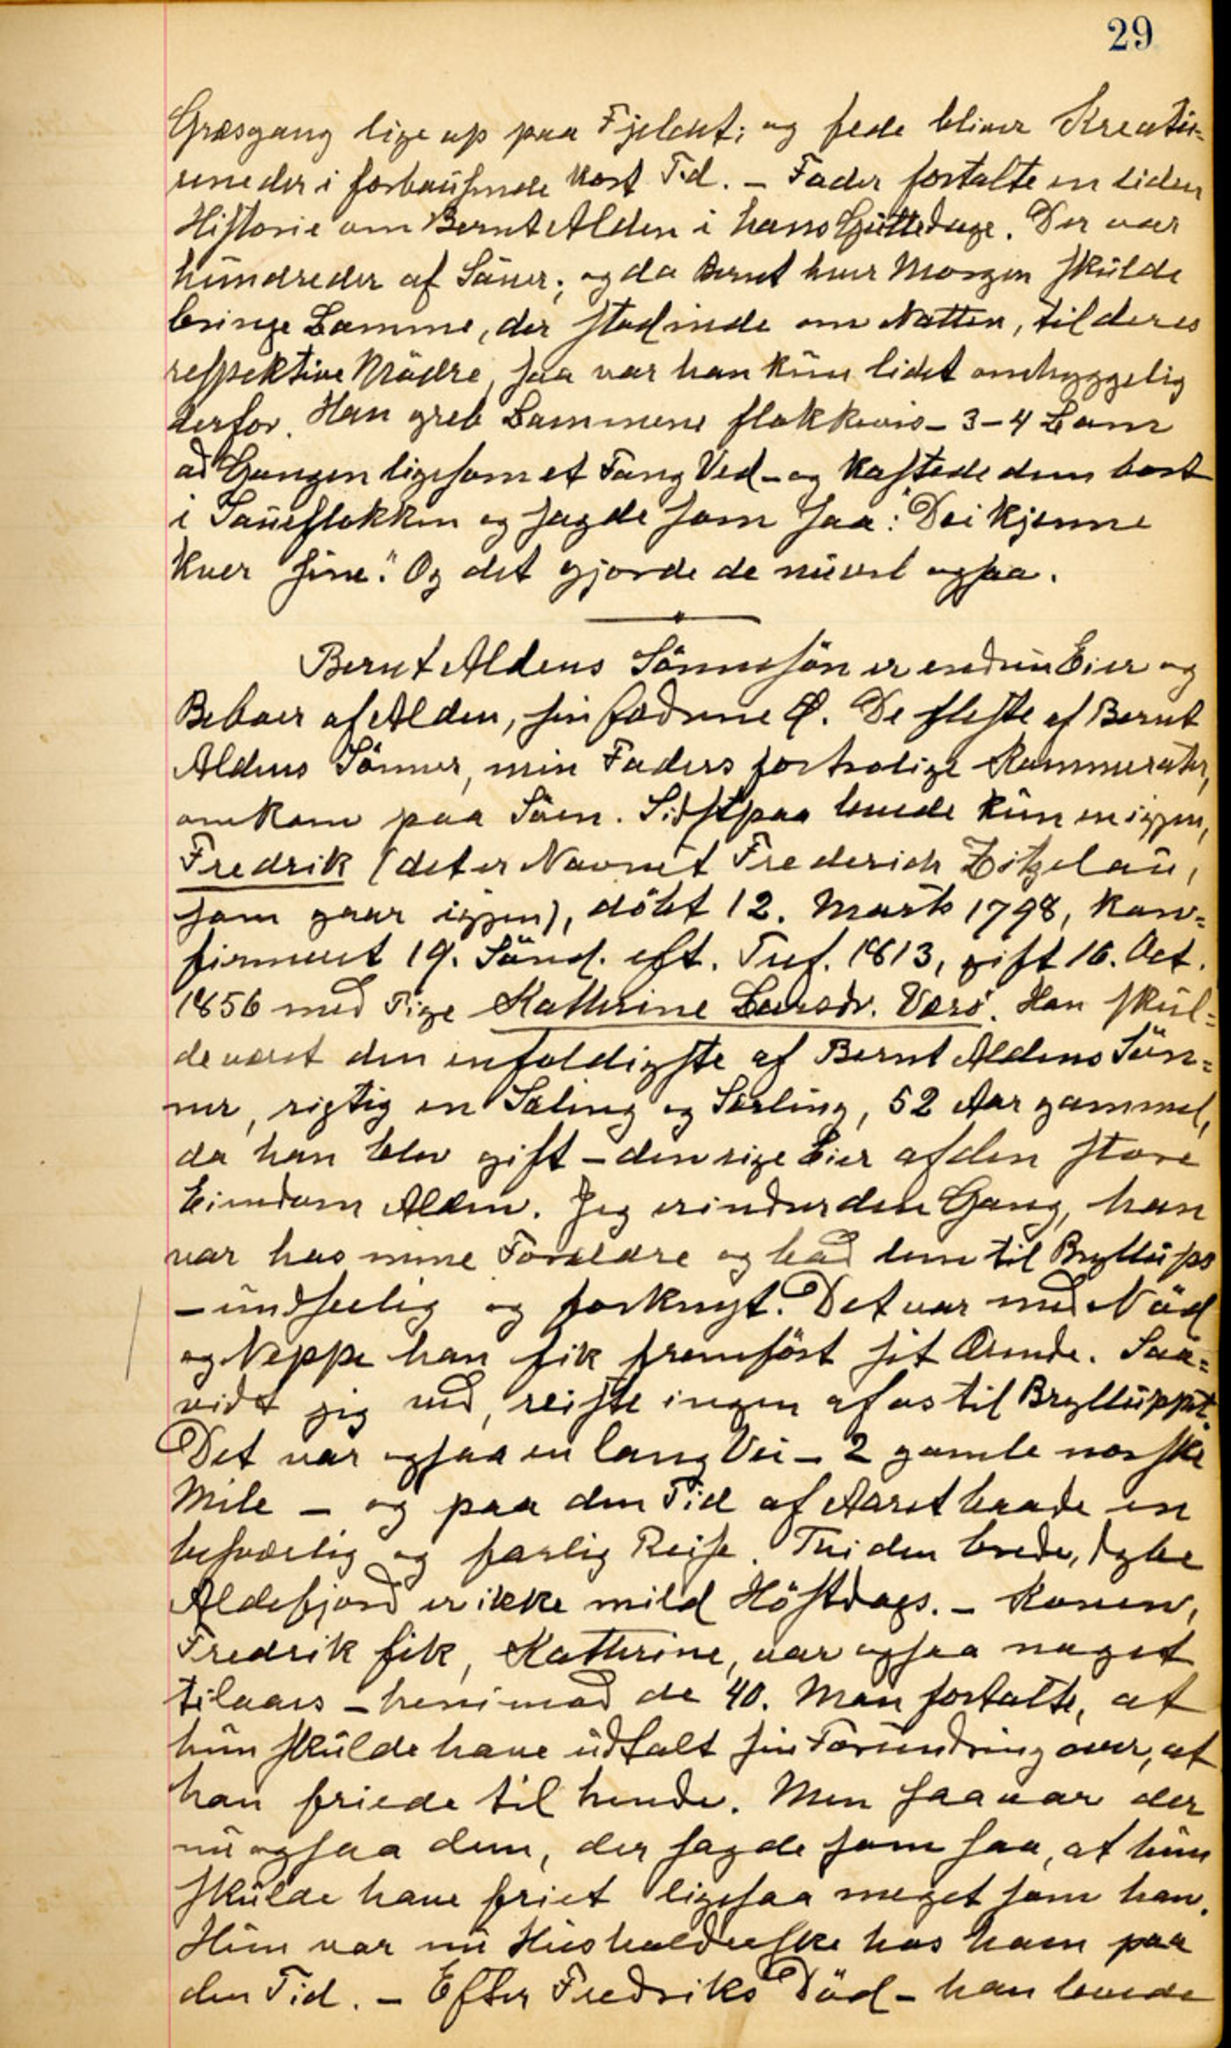 29
Græsgang lige op paa Fjeldet; og fede bliver Kreatu-
rene der i forbausende kort Tid. – Fader fortalte en liden
Historie om Bernt Alden i hans Guttedage. Der var
hundreder af Sauer; og da Bernt hver Morgen skulde
bringe Lamme, der stod inde om Natten, til deres
respektive Mødre, saa var han kun lidet omhyggelig
derfor. Han greb Lammene flokkevis – 3–4 Lam
ad Gangen ligesom et Fang Ved – og kastede dem bort
i Saueflokken og sagde som saa: "Dei kjenne
kver sine." Og det gjorde de nu vel ogsaa.
Bernt Aldens Sønnesøn er endnu Eier og
Beboer af Alden, sin fædrene Ø. De fleste af Bernt
Aldens Sønner, min Faders fortrolige Kammerater,
omkom paa Søen. Sidstpaa levede kun en igjen,
Fredrik (det er Navnet Frederich Zitzelau,
som gaar igjen), døbt 12. Marts 1798, kon-
firmeret 19. Sønd. eft. Tref. 1813, gift 16. Oct.
1856 med Pige Kathrine Larsdr. Værö. Han skul-
de været den enfoldigste af Bernt Aldens Søn-
ner, rigtig en Sæling og Særling, 52 Aar gammel,
da han blev gift – den rige Eier af den store
Eiendom Alden. Jeg erindrer den Gang, han
var hos mine Forældre og bad dem til Bryllups
– undseelig og forknyt. Det var med Nød
og Neppe han fik fremført sit Ærende. Saa-
vidt jeg ved, reiste ingen af os til Brylluppet.
Det var ogsaa en lang Vei – 2 gamle norske
Mile – og paa den Tid af Aaret baade en
besværlig og farlig Reise. Thi den brede, dybe
Aldefjord er ikke mild Høstdags. – Konen,
Fredrik fik, Kathrine, var ogsaa noget
tilaars – henimod de 40. Man fortalte, at
hun skulde have udtalt sin Forundring over, at
han friede til hende. Men saa var der
nu ogsaa dem, der sagde som saa, at hun
skulde have friet ligesaa meget som han.
Hun var nu Husholderske hos ham paa
den Tid. – Efter Fredriks Død – han levede